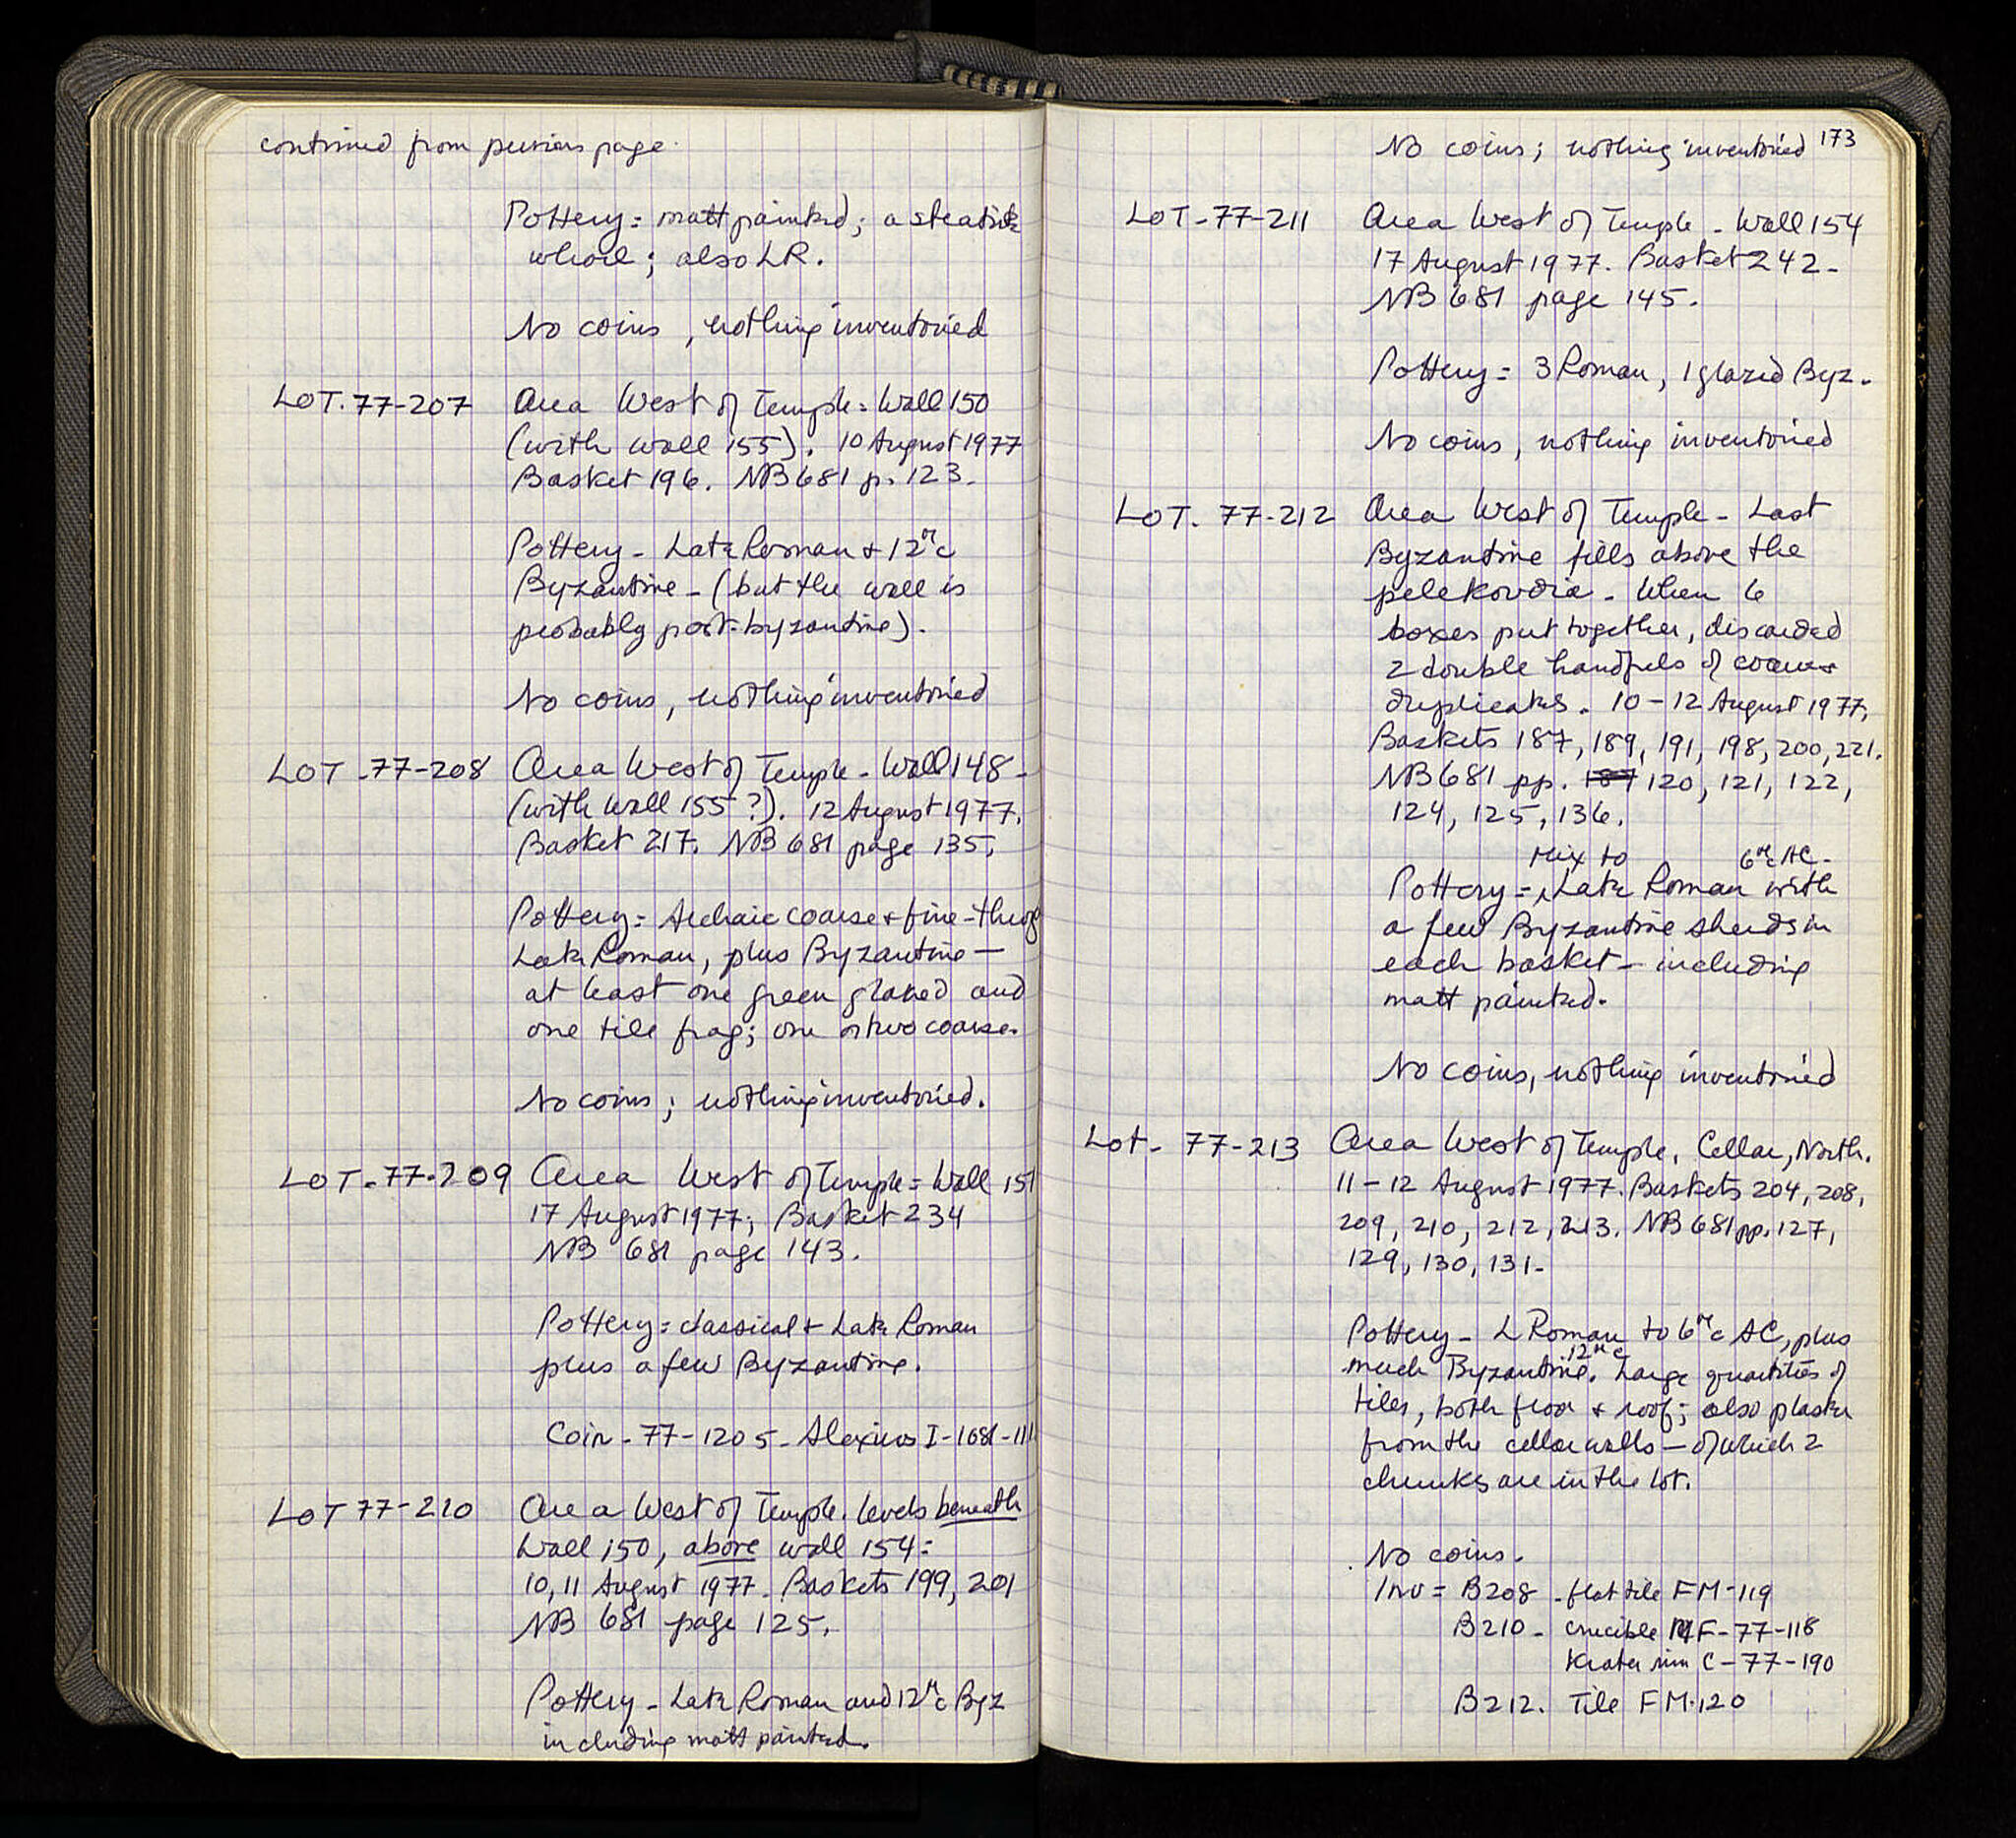 continued from previous page.
Pottery = matt painted; a steatite
whorl; also LR.
No coins, nothing inventoried
LOT. 77-207 Area West of Temple = Wall 150
(with wall 155). 10 August 1977
Basket 196. NB 681 p. 123.
Pottery - Late Roman + 12th c
Byzantine - (but the wall is
probably post-byzantine).
No coins, nothing inventoried
LOT - 77-208 Area West of Temple - Wall 148 -
(with wall 155?). 12 August 1977.
Basket 217. NB 681 page 135.
Pottery = Archaic coarse + fine - through
Late Roman, plus Byzantine —
at least one green glazed and
one tile frag; one or two coarse.
No coins; nothing inventoried.
LOT - 77-209 Area West of Temple = Wall 151
17 August 1977; Basket 234
NB 681 page 143.
Pottery = classical + Late Roman
plus a few Byzantine.
Coin - 77-1205 - Alexius I - 1081-111
LOT 77-210 Area West of Temple. levels beneath
Wall 150, above wall 154 =
10, 11 August 1977. Baskets 199, 201
NB 681 page 125.
Pottery - Late Roman and 12th c Byz
including matt painted.
173
No coins; nothing inventoried
LOT - 77-211 Area West of Temple - Wall 154
17 August 1977. Basket 242 -
NB 681 page 145.
Pottery = 3 Roman, 1 glazed Byz.
No coins, nothing inventoried
LOT. 77-212 Area West of Temple - Last
Byzantine fills above the
pelekoudia - When 6
boxes put together, discarded
2 double handfuls of coarse
duplicates. 10-12 August 1977,
Baskets 187, 189, 191, 198, 200, 221.
NB 681 pp. 187 120, 121, 122,
124, 125, 136.
Mix to 6th c AC -
Pottery = Late Roman with
a few Byzantine sherds in
each basket - including
matt painted.
No coins, nothing inventoried
Lot - 77-213 Area West of Temple, Cellar, North.
11-12 August 1977. Baskets 204, 208,
209, 210, 212, 213. NB 681 pp. 127,
129, 130, 131 -
Pottery - L Roman to 6th c AC, plus
12th c
much Byzantine. Large quantities of
tiles, both floor + roof; also plaster
from the cellar walls — of which 2
chunks are in the lot.
No coins.
Inv = B208 - flat tile FM-119
B210 - crucible MF-77-118
Krater rim C-77-190
B212. Tile FM-120